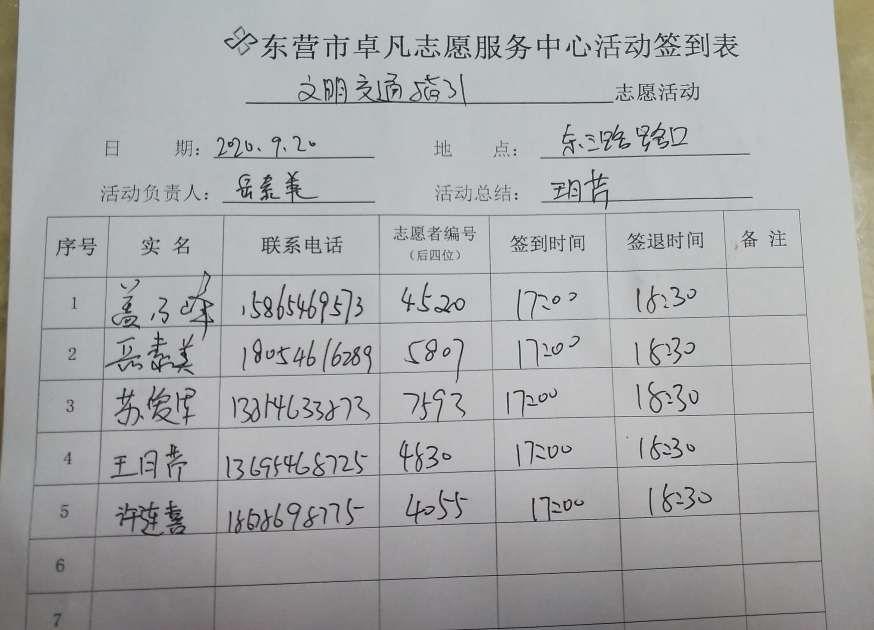 东营市卓凡志愿服务中心活动签到表
文明交通指引 志愿活动
日 期: 2020.9.20 地 点: 东三路路口
活动负责人: 岳素美 活动总结: 王月芳
序号 实 名 联系电话 志愿者编号 (后四位) 签到时间 签退时间 备 注
1 盖 15865469573 4520 17:00 18:30
2 岳素美 18054616289 5807 17:00 18:30
3 苏俊军 13814633873 7593 17:00 18:30
4 王月芳 13695468725 4830 17:00 18:30
5 许连喜 4055 17:00 18:30
6
7